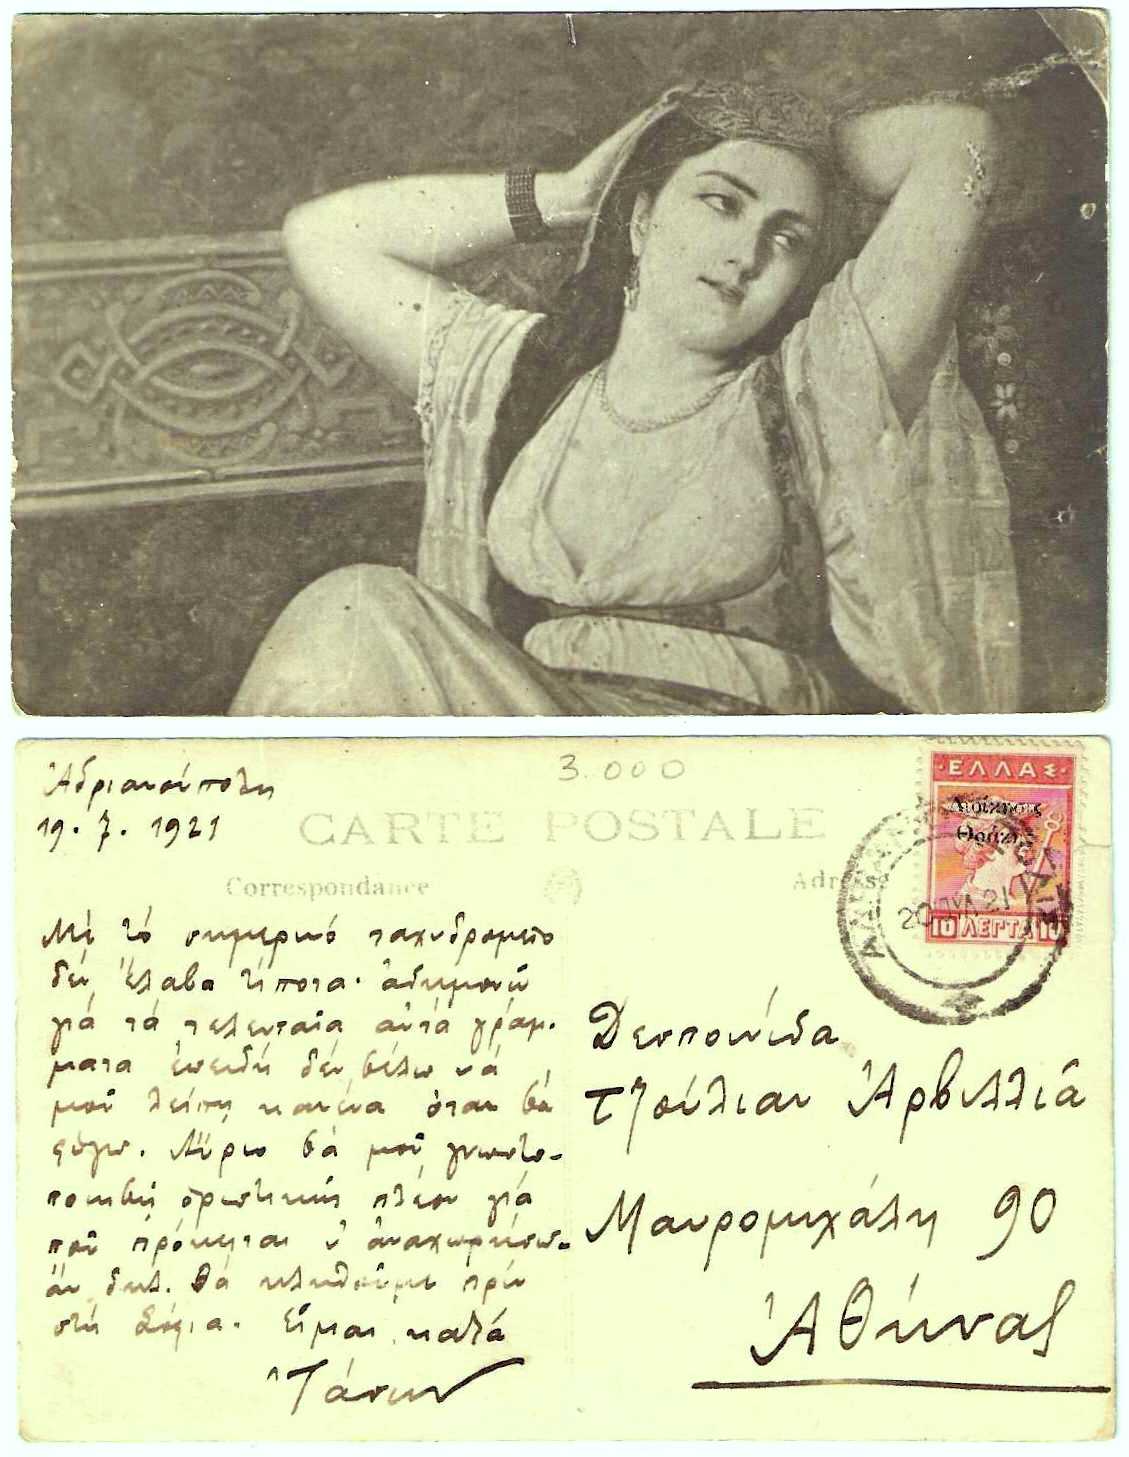 Ἀδριανούπολη
19.7.1921
3.000
CARTE POSTALE
Correspondance
Adresse
ΕΛΛΑΣ
Διοίκησις
Θράκης
10 ΛΕΠΤΑ 10
20 21
Μὲ τὸ σημερινό ταχυδρομεῖο
δέν ἔλαβα τίποτα. ἀδημονῶ
γιά τά τελευταῖα αὐτά γράμ-
ματα ἐπειδή δέν θέλω νά
μοῦ λείπῃ κανένα ὅταν θά
φύγω. Αὔριο θά μοῦ γνωστο-
ποιηθῇ ὁριστικῶς πλέον γιά
ποῦ πρόκειται ν' ἀναχωρήσω-
ἄν δηλ. θά κληθοῦμε πρίν
στή Σόφια. Εἶμαι καλά
Ἰάσων
Δεσποινίδα
Τζούλιαν Ἀρβιλλιᾶ
Μαυρομιχάλη 90
Ἀθήνας